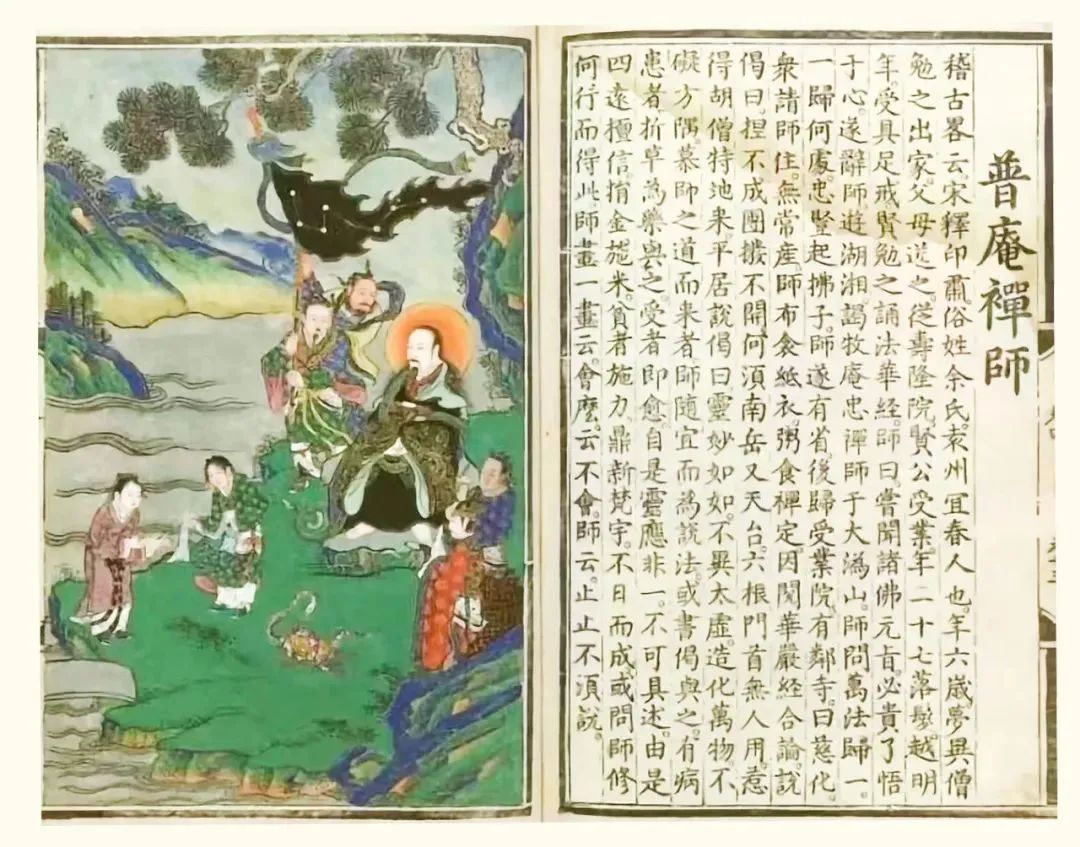 普庵禪師
稽古畧云。宋釋印肅。俗姓余氏。袁州宜春人也。年六歲。夢異僧
勉之出家。父母送之。從壽隆院。賢公受業。年二十七落髮。越明
年受具足戒。賢勉之誦法華經。師曰。嘗聞諸佛元旨。必貴了悟
于心。遂辭師遊湖湘。謁牧庵忠禪師于大溈山。師問萬法歸一。
一歸何處。忠豎起拂子。師遂有省。後歸受業院。有鄰寺曰慈化。
衆請師住。無常産。師布衾紙衣。粥食禪定。因閱華嚴經合論。說
偈曰。捏不成團撥不開。何須南岳又天台。六根門首無人用。惹
得胡僧特地来。平居說偈曰。靈妙如如。不異太虛。造化萬物。不
礙方隅。慕師之道而来者。師隨宜而為說法。或書偈與之。有病
患者。折草為藥與之。受者即愈。自是靈應非一。不可具述。由是
四遠檀信。捐金施米。貧者施力。鼎新梵宇。不日而成。或問師修
何行而得此。師畫一畫云。會麼。云不會。師云。止止不須說。